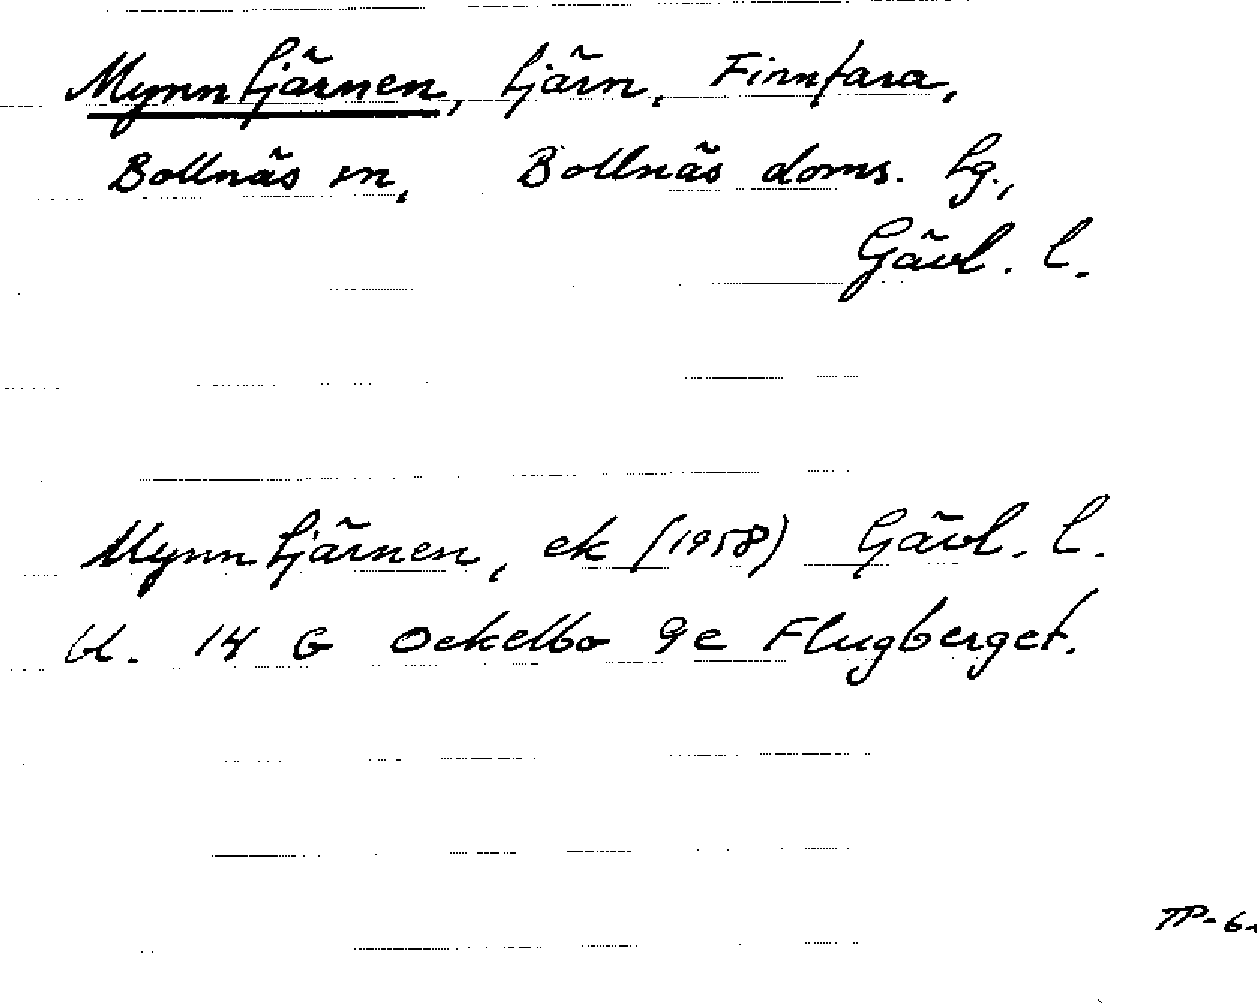 Mynntjärnen, tjärn, Finnfara,
Bollnäs sn, Bollnäs doms. tg.,
Gävl. l.
Mynntjärnen, ek (1958) Gävl. l.
bl. 14 G Ockelbo 9e Flugberget.